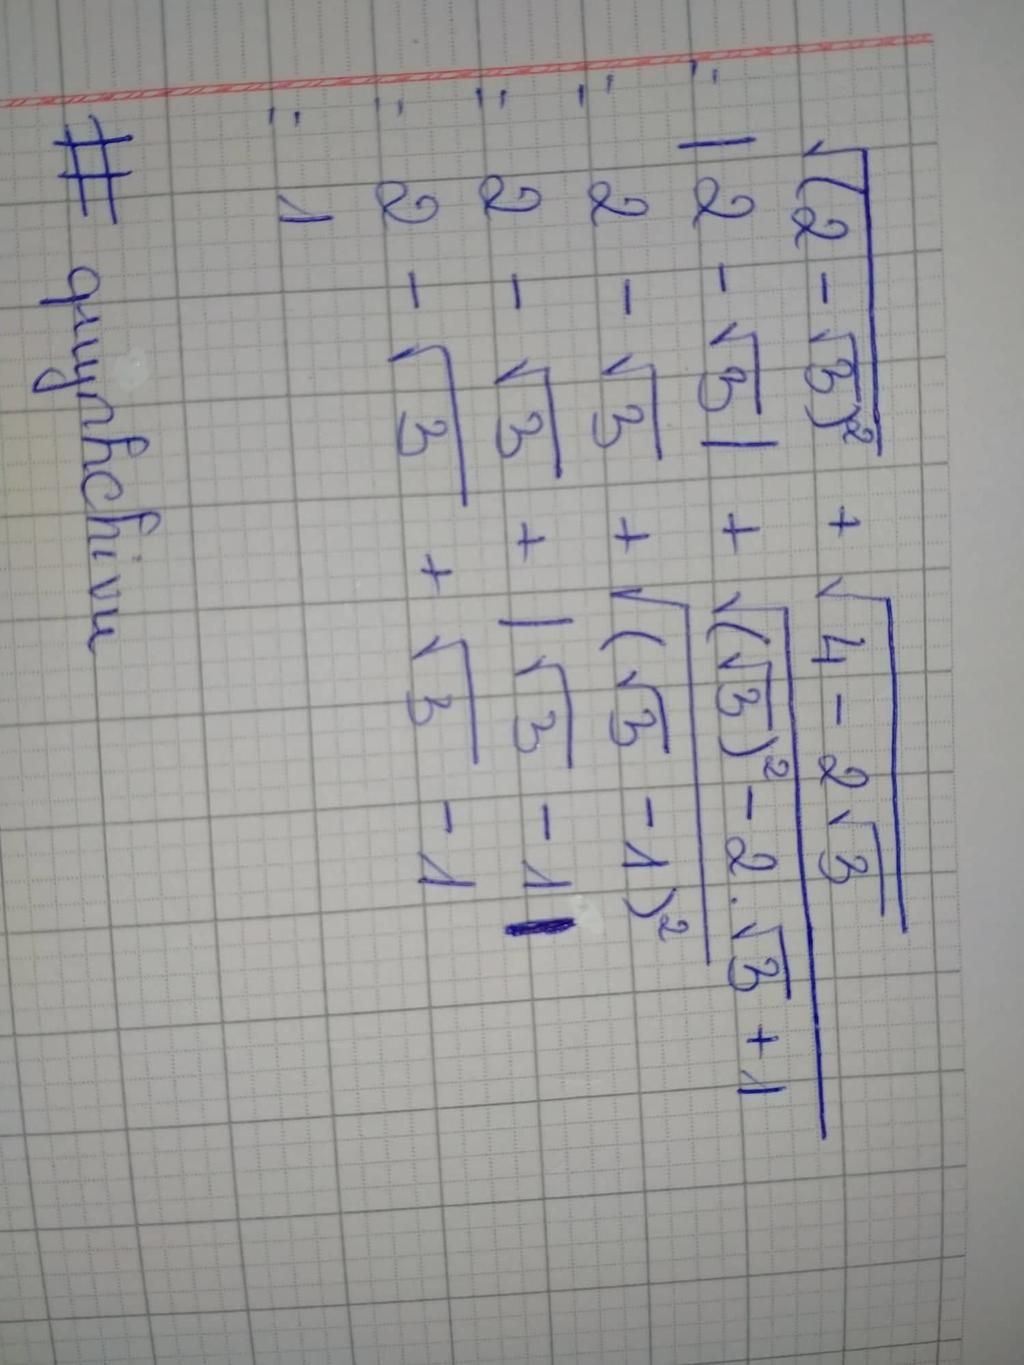 √(2 - √3)² + √4 - 2√3
= |2 - √3| + √(√3)² - 2.√3 + 1
= 2 - √3 + √(√3 - 1)²
= 2 - √3 + |√3 - 1|
= 2 - √3 + √3 - 1
= 1
# quynhchivu